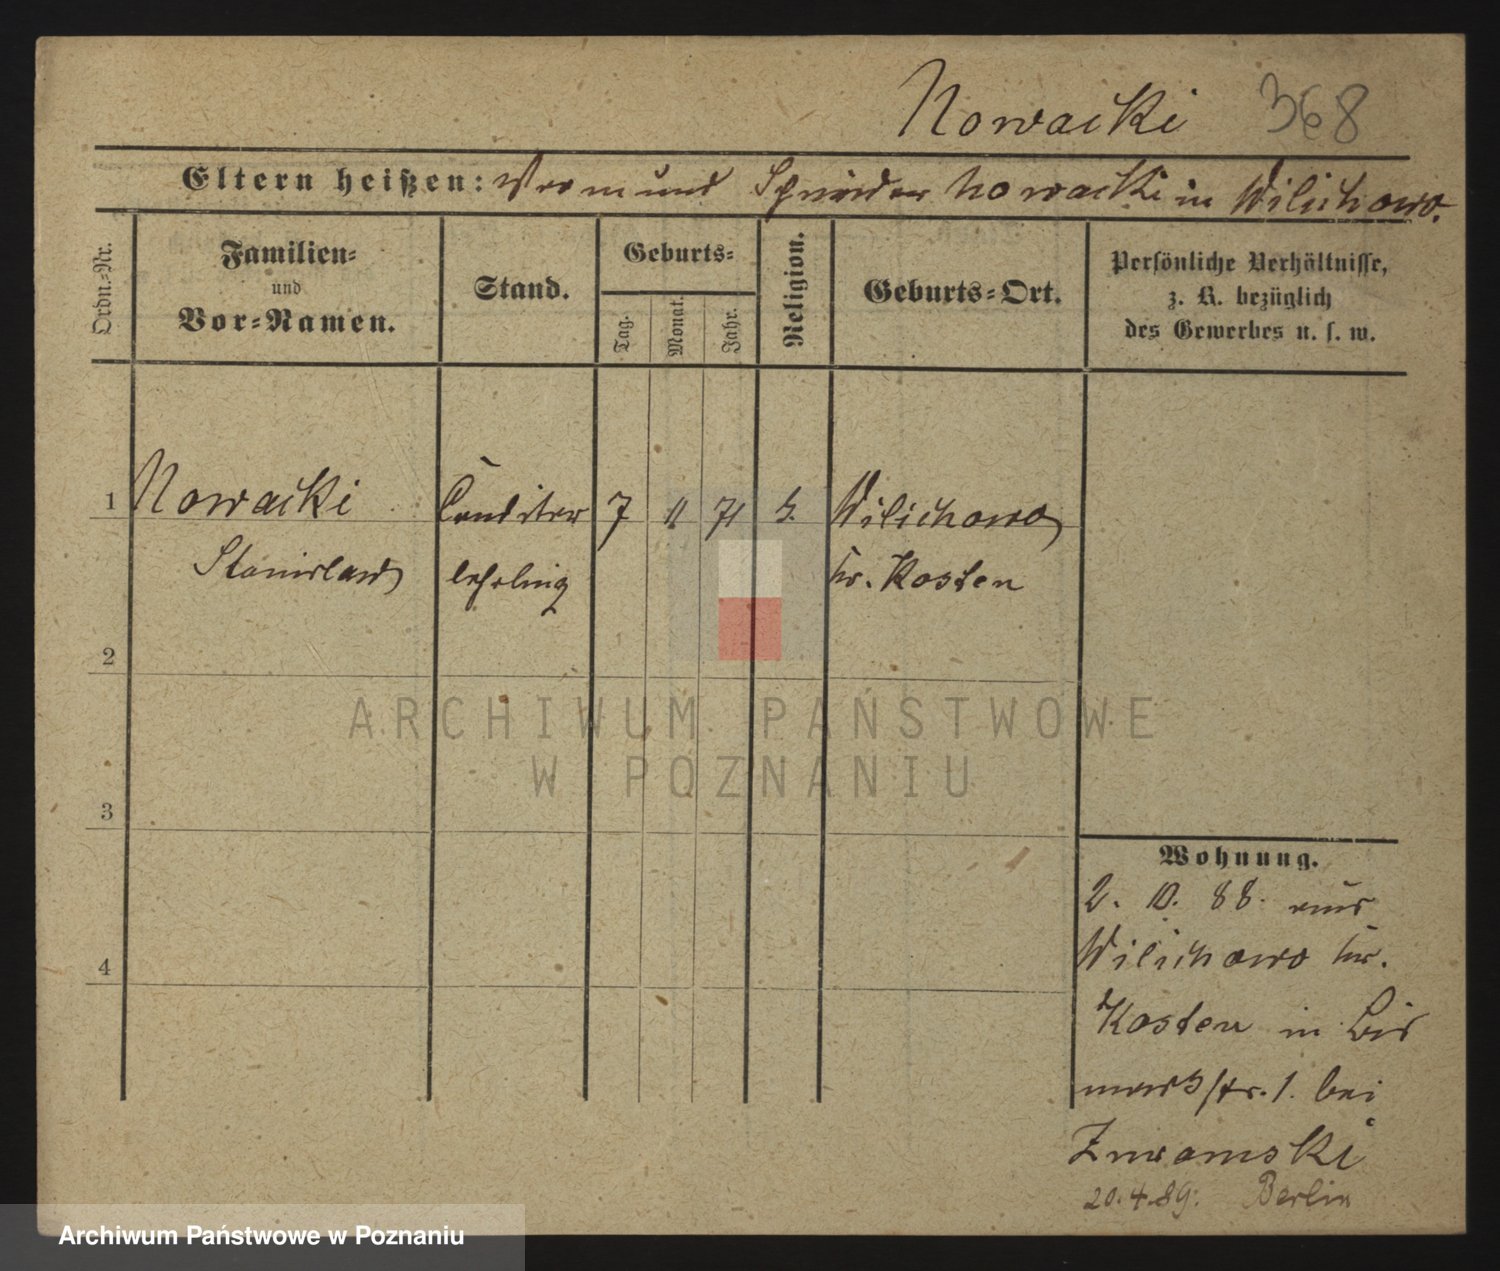 Nowacki 368
Eltern heißen: Vormund Schneider Nowacki in Wilichowo.
Ordn.-Nr.
Familien-
und
Vor-Namen.
Stand.
Geburts-
Tag.
Monat.
Jahr.
Religion.
Geburts-Ort.
Persönliche Verhältnisse,
z. B. bezüglich
des Gewerbes u. s. w.
1 Nowacki Conditor 7 11 71 k. Wilichowo
Stanislaus lehrling Kr. Kosten
2
3
4
Wohnung.
2. 10. 88. aus
Wilichowo Kr.
Kosten in Bis
markstr. 1. bei
20.4.89. Berlin
ARCHIWUM PAŃSTWOWE
W POZNANIU
Archiwum Państwowe w Poznaniu